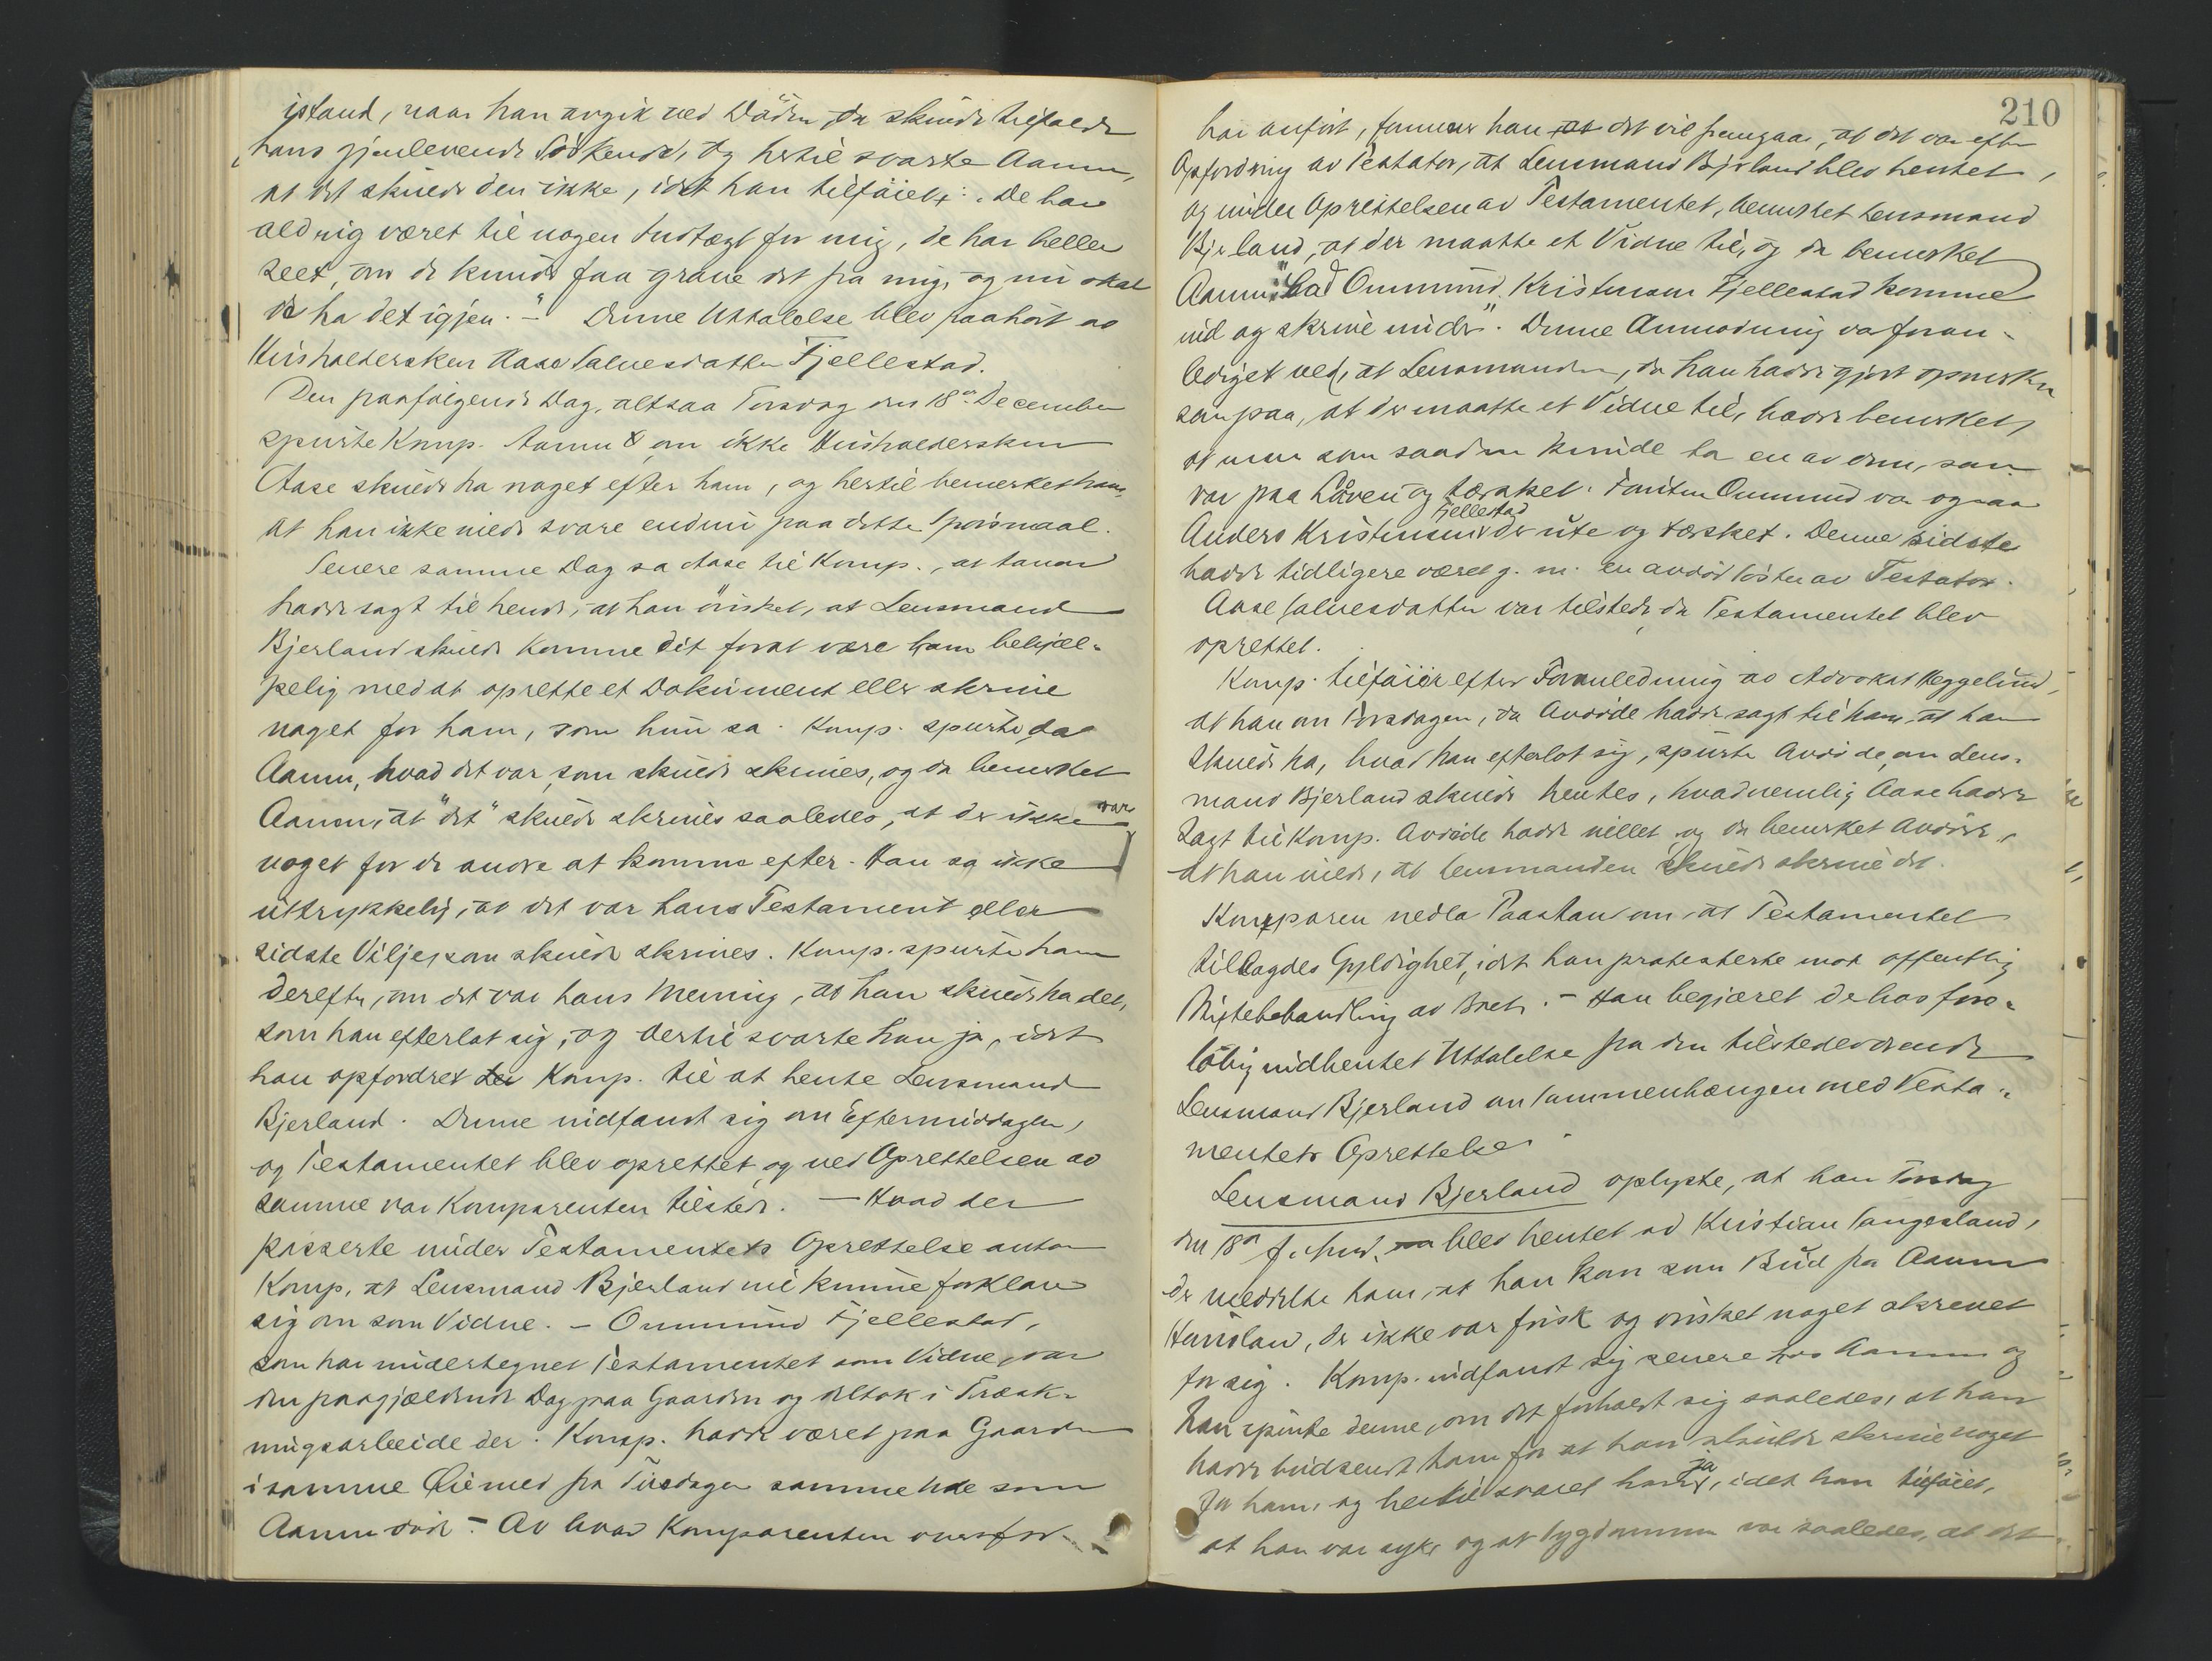 istand, naar han avgik ved Döden, da skulde tilfalde
hans gjenlevende Södskende, og hertil svarte Aanon,
at det skulde den ikke, idet han tilföiet: "De har
aldrig været til nogen Indtægt for mig, de har heller
seet, om de kunde faa grave det fra mig, og nu skal
de ha det igjen." - Denne Uttalelse blev paahört av
Husholdersken Aase Salvesdatter Fjellestad.
Den paafölgende Dag, altsaa Torsdag den 18de December
spurte Komp. Aanon om ikke Husholdersken
Aase skulde ha noget efter ham, og hertil bemerket han,
at han ikke vilde svare endnu paa dette Spörsmaal.
Senere samme Dag sa Aase til Komp., at Aanon
hadde sagt til hende, at han önsket, at Lensmand
Bjerland skulde komme dit forat være ham behjæl-
pelig med at oprette et Dokument eller skrive
noget for ham, som hun sa. Komp. spurte da
Aanon, hvad det var, som skulde skrives, og da bemerket
Aanon, at "det" skulde skrives saaledes, at der ikke var
noget for de andre at komme efter. Han sa ikke
uttrykkelig, at det var hans Testament eller
sidste Vilje, som skulde skrives. Komp. spurte ham
derefter, om det var hans Mening, at han skulde ha det,
som han efterlot sig, og dertil svarte han ja, idet
han opfordret Komp. til at hente Lensmand
Bjerland. Denne indfandt sig om Eftermiddagen,
og Testamentet blev oprettet, og ved Oprettelsen av
samme var Komparenten tilstede. - Hvad der
passerte under Testamentets Oprettelse antar
Komp. at Lensmand Bjerland vil kunne forklare
sig om som Vidne. - Ommund Fjellestad,
som har undertegnet Testamentet som Vidne, var
den paagjældende Dag paa Gaarden og deltok i Træsk-
ningsarbeide der. Komp. hadde været paa Gaarden
i samme Öiemed fra Tirsdagen samme Uke som
Aanon döde. - Av hvad Komparenten ovenfor
210
har anfört, formener han det vil fremgaa, at det var efter
Opfordring av Testator, at Lensmand Bjerland blev hentet,
og under Oprettelsen av Testamentet, bemerket Lensmand
Bjerland, at der maatte et Vidne til, og da bemerket
Aanon: "Lad Ommund Kristensen Fjellestad komme
ind og skrive under". Denne Anmodning var foran-
lediget ved, at Lensmanden, da han hadde gjort opmerk
som paa, at der maatte et Vidne til, hadde bemerket,
at man som saadan kunde ta en av dem, som
var paa Låven og tærsket. Foruten Ommund var ogsaa
Anders Kristensen Fjellestad der ute og tærsket. Denne sidste
hadde tidligere været g. m. en avdöd Söster av Testator.
Aase Salvesdatter var tilstede, da Testamentet blev
oprettet.
Komp. tilföier efter Foranledning av Advokat Heggelund,
at han om Torsdagen, da Avdöde hadde sagt til ham, at han
skulde ha, hvad han efterlot sig, spurte Avdöde, om Lens-
mand Bjerland skulde hentes, hvad nemlig Aase hadde
sagt til Komp. Avdöde hadde villet, og da bemerket Avdöde,
at han vilde, at Lensmanden skulde skrive det.
Komparen nedla Paastand om, at Testamentet
tillagdes Gyldighet, idet han protesterte mot offentlig
Skiftebehandling av Boet. - Han begjæret derhos fore-
löbig indhentet Uttalelse fra den tilstedeværende
Lensmand Bjerland om Sammenhængen med Testa-
mentets Oprettelse.
Lensmand Bjerland oplyste, at han Torsdag
den 18de f. Md. blev hentet av Kristian Vangesland,
der meddelte ham, at han kom som Bud fra Aanon
Haugland, der ikke var frisk og önsket noget skrevet
for sig. Komp. indfandt sig senere hos Aanon og
han spurte denne, om det forholdt sig saaledes, at han
hadde budsendt ham for at han skulde skrive noget
for ham, og hertil svaret han ja, idet han tilföiet,
at han var syk, og at Sygdommen var saaledes, at det